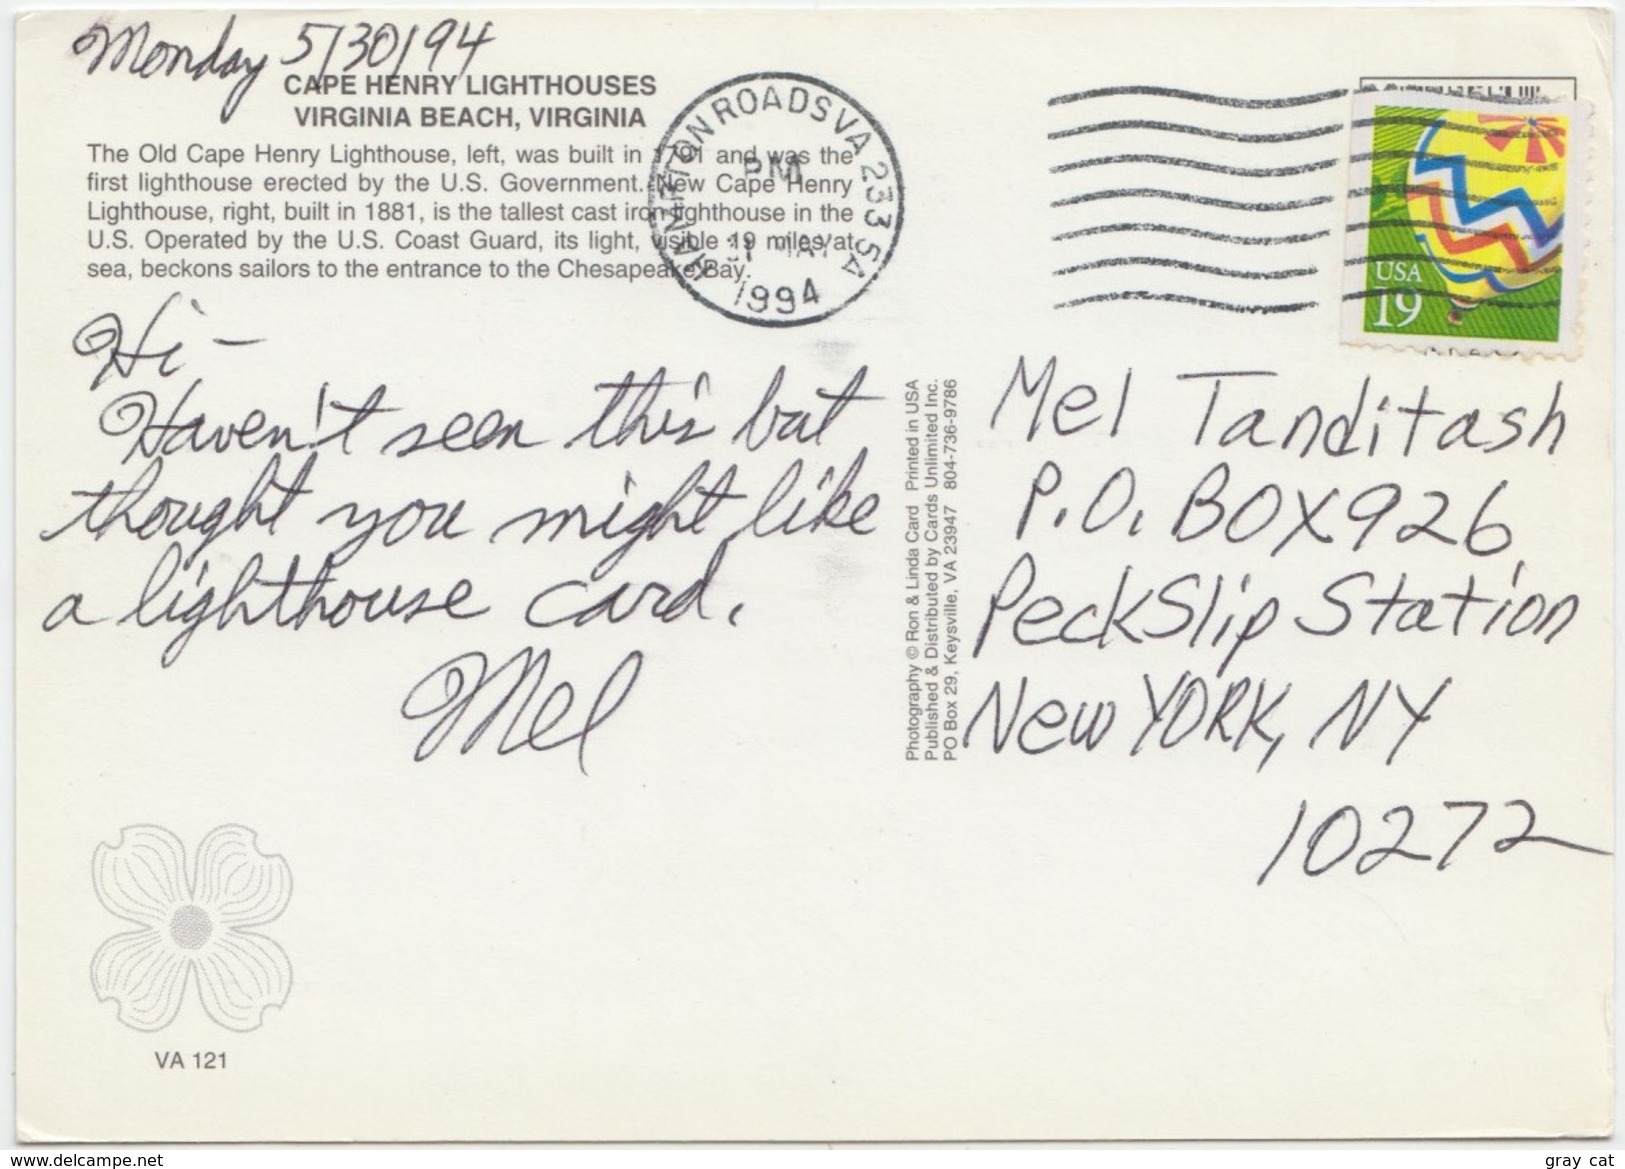 Monday 5/30/94
CAPE HENRY LIGHTHOUSES
VIRGINIA BEACH, VIRGINIA
The Old Cape Henry Lighthouse, left, was built in 1791 and was the
first lighthouse erected by the U.S. Government. New Cape Henry
Lighthouse, right, built in 1881, is the tallest cast iron lighthouse in the
U.S. Operated by the U.S. Coast Guard, its light, visible 19 miles at
sea, beckons sailors to the entrance to the Chesapeake Bay.
HAMPTON ROADS VA 233 SA
PM
31 MAY
1994
USA
19
Hi –
Haven't seen this but
thought you might like
a lighthouse card.
Mel
Photography © Ron & Linda Card Printed in USA
Published & Distributed by Cards Unlimited Inc.
PO Box 29, Keysville, VA 23947 804-736-9786
Mel Tanditash
P.O. BOX 926
Peck Slip Station
New YORK, NY
10272
VA 121
www.delcampe.net
gray cat